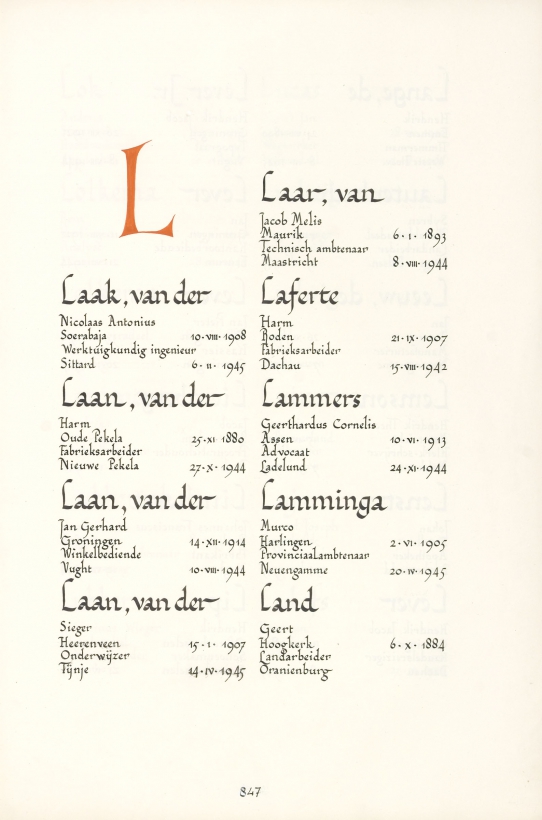 L
Laak, van der
Nicolaas Antonius
Soerabaja 10·VIII·1908
Werktuigkundig ingenieur
Sittard 6·II·1945
Laan, van der
Harm
Oude Pekela 25·XI·1880
Fabrieksarbeider
Nieuwe Pekela 27·X·1944
Laan, van der
Jan Gerhard
Groningen 14·XII·1914
Winkelbediende
Vught 10·VIII·1944
Laan, van der
Sieger
Heerenveen 15·I·1907
Onderwijzer
Tijnje 14·IV·1945
Laar, van
Jacob Melis
Maurik 6·I·1893
Technisch ambtenaar
Maastricht 8·VIII·1944
Laferte
Harm
Roden 21·IX·1907
Fabrieksarbeider
Dachau 15·VIII·1942
Lammers
Geerthardus Cornelis
Assen 10·VI·1913
Advocaat
Ladelund 24·XI·1944
Lamminga
Murco
Harlingen 2·VI·1905
Provinciaalambtenaar
Neuengamme 20·IV·1945
Land
Geert
Hoogkerk 6·X·1884
Landarbeider
Oranienburg
847